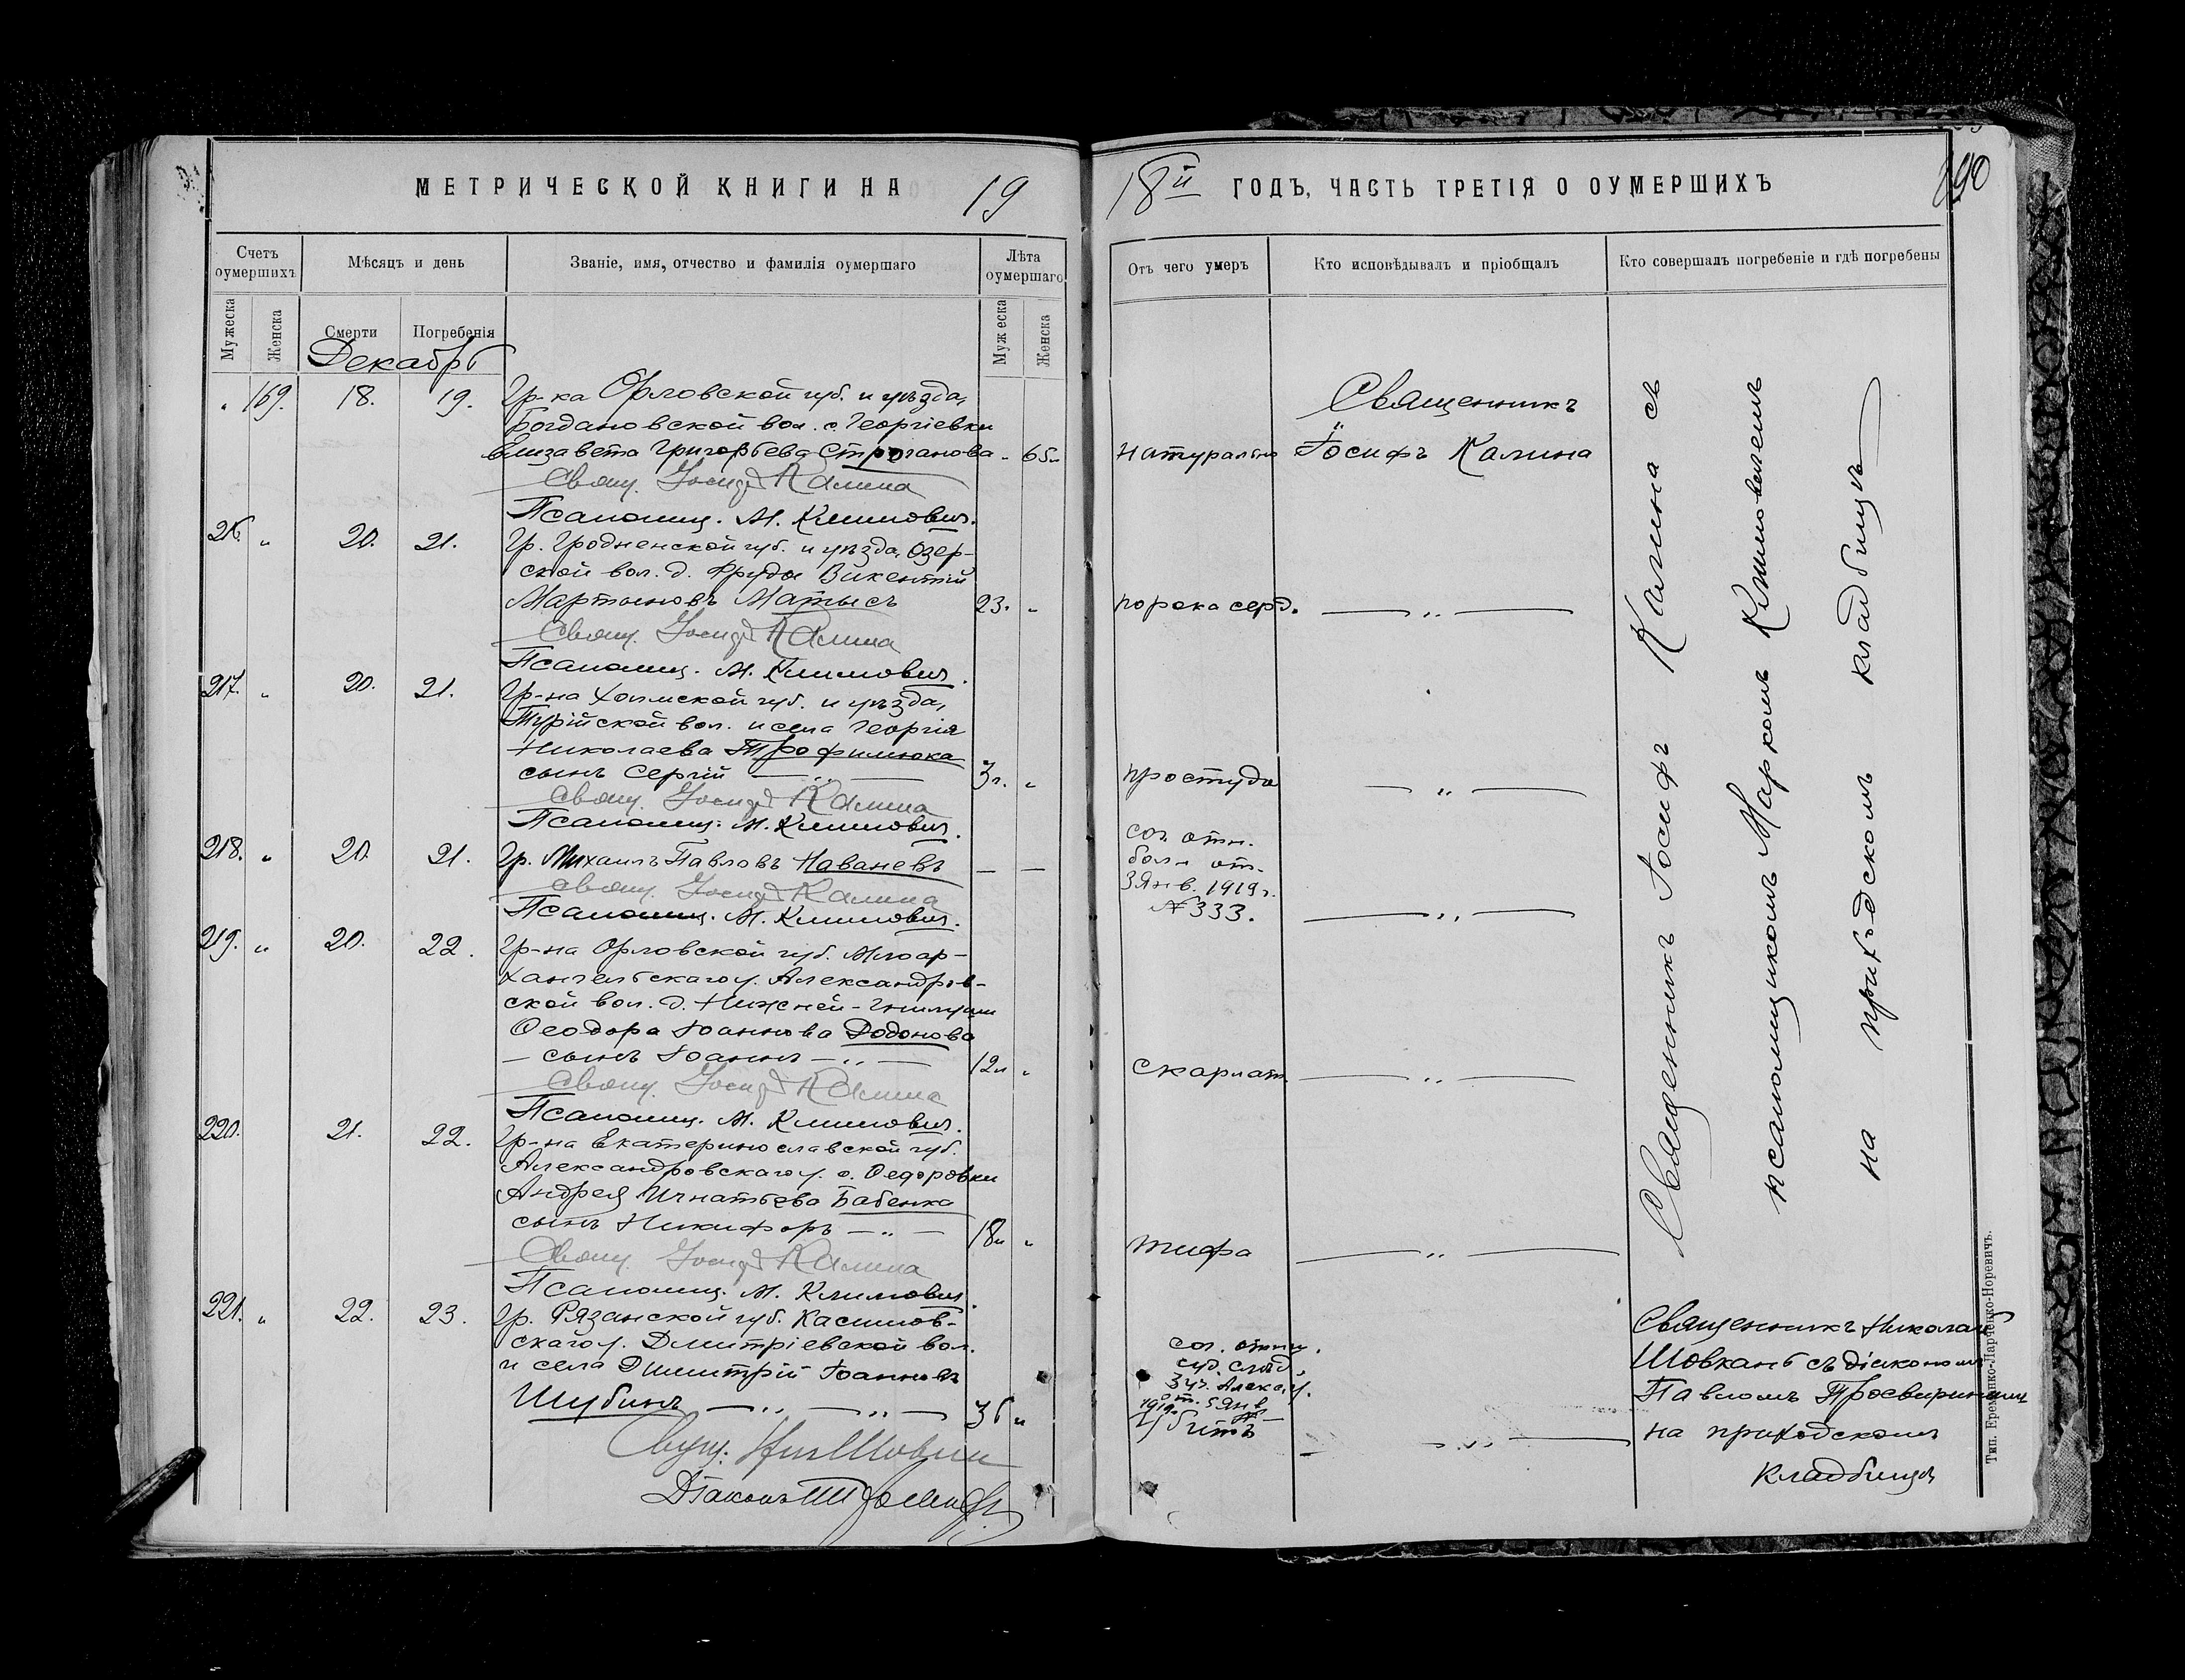 МЕТРИЧЕСКОЙ КНИГИ НА 19
18й ГОДЪ, ЧАСТЬ ТРЕТІЯ О ОУМЕРШИХЪ
190
Счетъ оумершихъ
Мѣсяцъ и день
Званіе, имя, отчество и фамилія оумершаго
Лѣта оумершаго
Отъ чего умеръ
Кто исповѣдывалъ и пріобщалъ
Кто совершалъ погребеніе и гдѣ погребены
Мужеска
Женска
Смерти
Погребенія
Мужеска
Женска
Декабрь
" 169. 18. 19. Гр-ка Орловской губ. и уѣзда,
Богдановской вол. с. Георгіевки
Елизавета Григорьева Строганова - 65л
натурально
Священникъ
Іосифъ Калина
Свящ. Іосифъ Калина
Псаломщ. М. Климович.
216. " 20. 21. Гр. Гродненской губ. и уѣзда, Озер-
ской вол. д. Фруда Викентій
Мартыновъ Матысъ 23. "
порока серд. — " —
Свящ. Іосифъ Калина
Псаломщ. М. Климович.
217. " 20. 21. Гр-на Холмской губ. и уѣзда,
Турійской вол. и села Георгія
Николаева Трофимюка
сынъ Сергій — " — 3г. "
простуда — " —
Свящ. Іосифъ Калина
Псаломщ. М. Климович.
218. " 20. 21. Гр. Михаилъ Павловъ Наваневъ — —
сог. отн.
бол-и от.
3 Янв. 1919 г.
№ 333. — " —
Свящ. Іосифъ Калина
Псаломщ. М. Климович.
219. " 20. 22. Гр-на Орловской губ. Млоар-
хангельскаго у. Александров-
ской вол. д. Нижней-
Ѳеодора Іоаннова Додонова
— сынъ Іоаннъ — " — 12л "
скарлат. — " —
Свящ. Іосифъ Калина
Псаломщ. М. Климович.
220. 21. 22. Гр-на Екатеринославской губ.
Александровскаго у. с. Ѳедоровки
Андрея Игнатьева Бабенка
сынъ Никифоръ — " — 18л "
тифа — " —
Свящ. Іосифъ Калина
Псаломщ. М. Климович.
Священникъ Іосифъ Калина съ
псаломщикомъ Маркомъ Климовичемъ
на приходскомъ кладбищѣ
221. " 22. 23. Гр. Рязанской губ. Касимов-
скаго у. Дмитріевской вол.
и села Димитрій Іоанновъ
Шубинъ — " — " — 36 "
сог. отнш.
суд. слѣд.
3 уч. Алекс. у.
от. 5 Янв
1919г. №—
Убитъ — " —
Священникъ Николай
Шовкань съ діакономъ
Павломъ
на приходскомъ
кладбищѣ
Свящ. Ник Шовкан
Діаконъ
Тип. Еременко-Ларченко-Норевичъ.